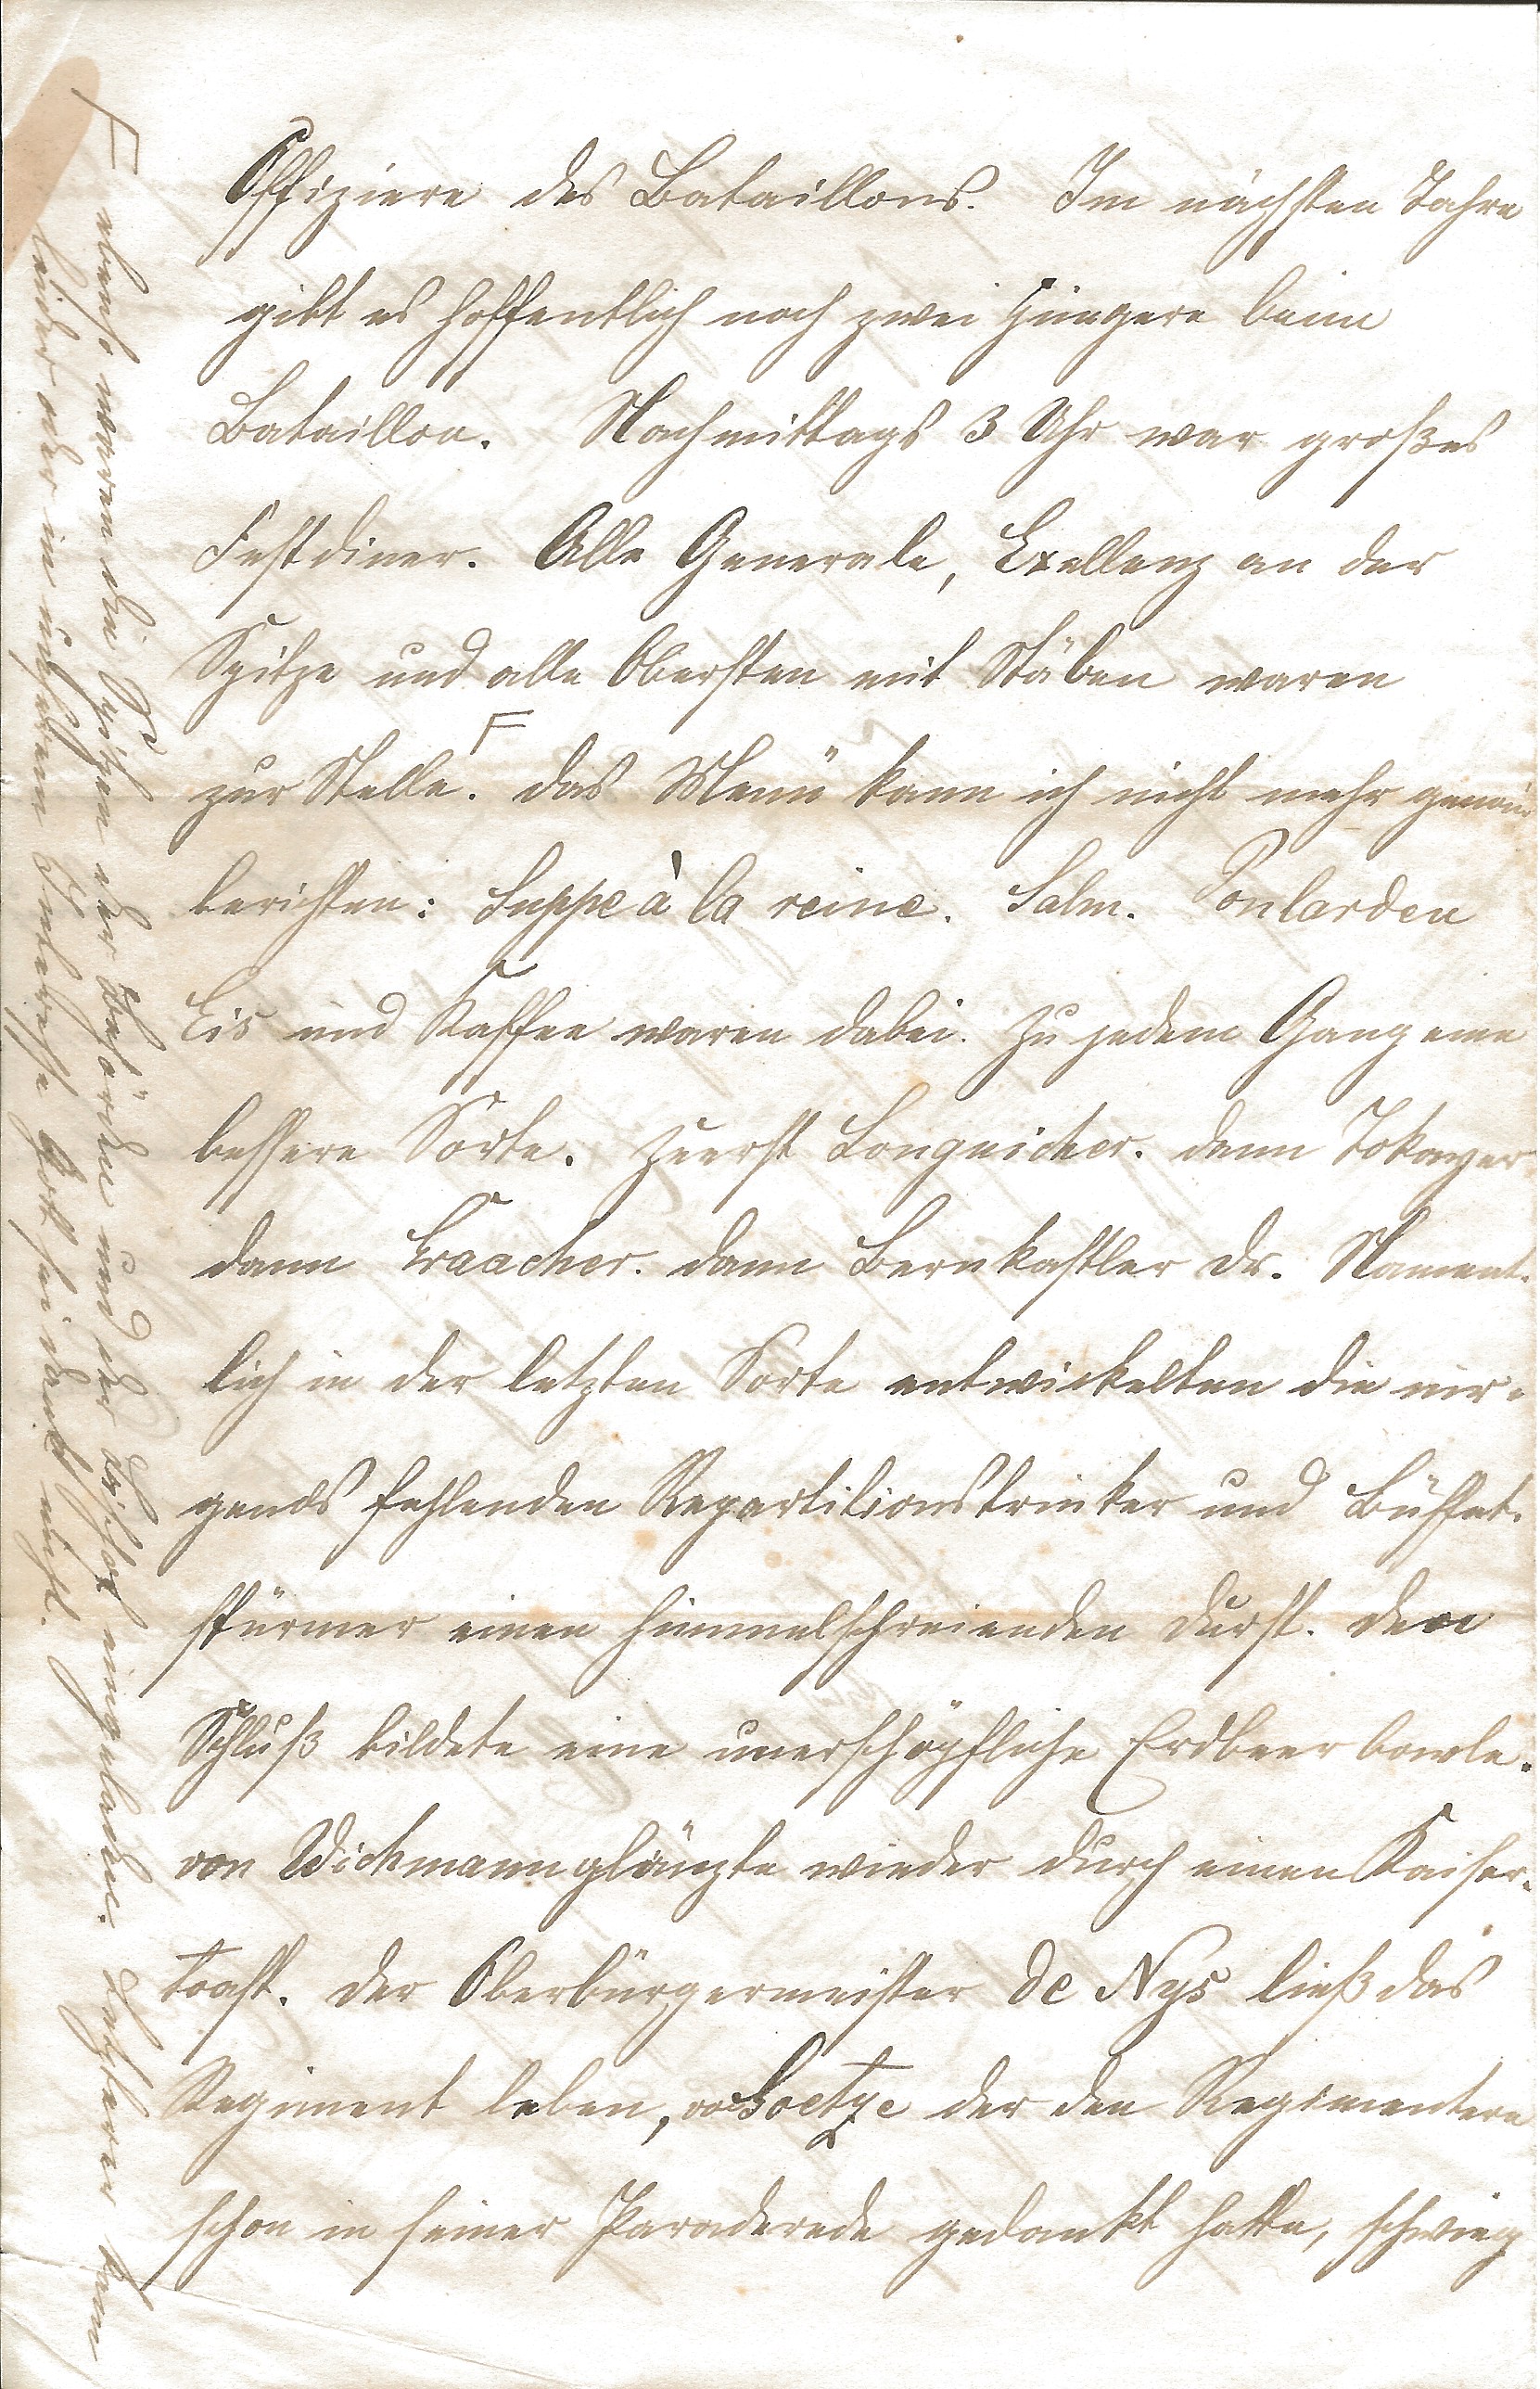 Offiziere des Bataillons. Im nächsten Jahre
gibt es hoffentlich noch zwei Jüngere beim
Bataillon. Nachmittags 3 Uhr war großes
Festdiner. Alle Generale, Exellenz an der
Spitze und alle Obersten mit Stäben waren
zur Stelle. F Das Menü kann ich nicht mehr genau
berichten: Suppe à la reine. Salm. Poularden
Eis und Kaffee waren dabei. Zu jedem Gang eine
bessere Sorte. Zuerst Longuicher. dann Tokayer
dann Graacher. dann Bernkastler Dr. Nament-
lich in der letzten Sorte entwickelten die nir-
gends fehlenden Repartitionstrinker und Büffet-
stürmer einen himmelschreienden Durst. Den
Schluß bildete eine unerschöpfliche Erdbeerbowle.
von Wichmann glänzte wieder durch einen Kaiser-
toast. Der Oberbürgermeister de Nys ließ das
Regiment leben, von Goetze der den Regimentern
schon in seiner Paraderede gedankt hatte, schwieg
F ebenso waren die Spitzen der Behörden und der Bischof eingeladen. Letzterer kam
leider oder in unserem Interesse Gott sei Dank nicht.